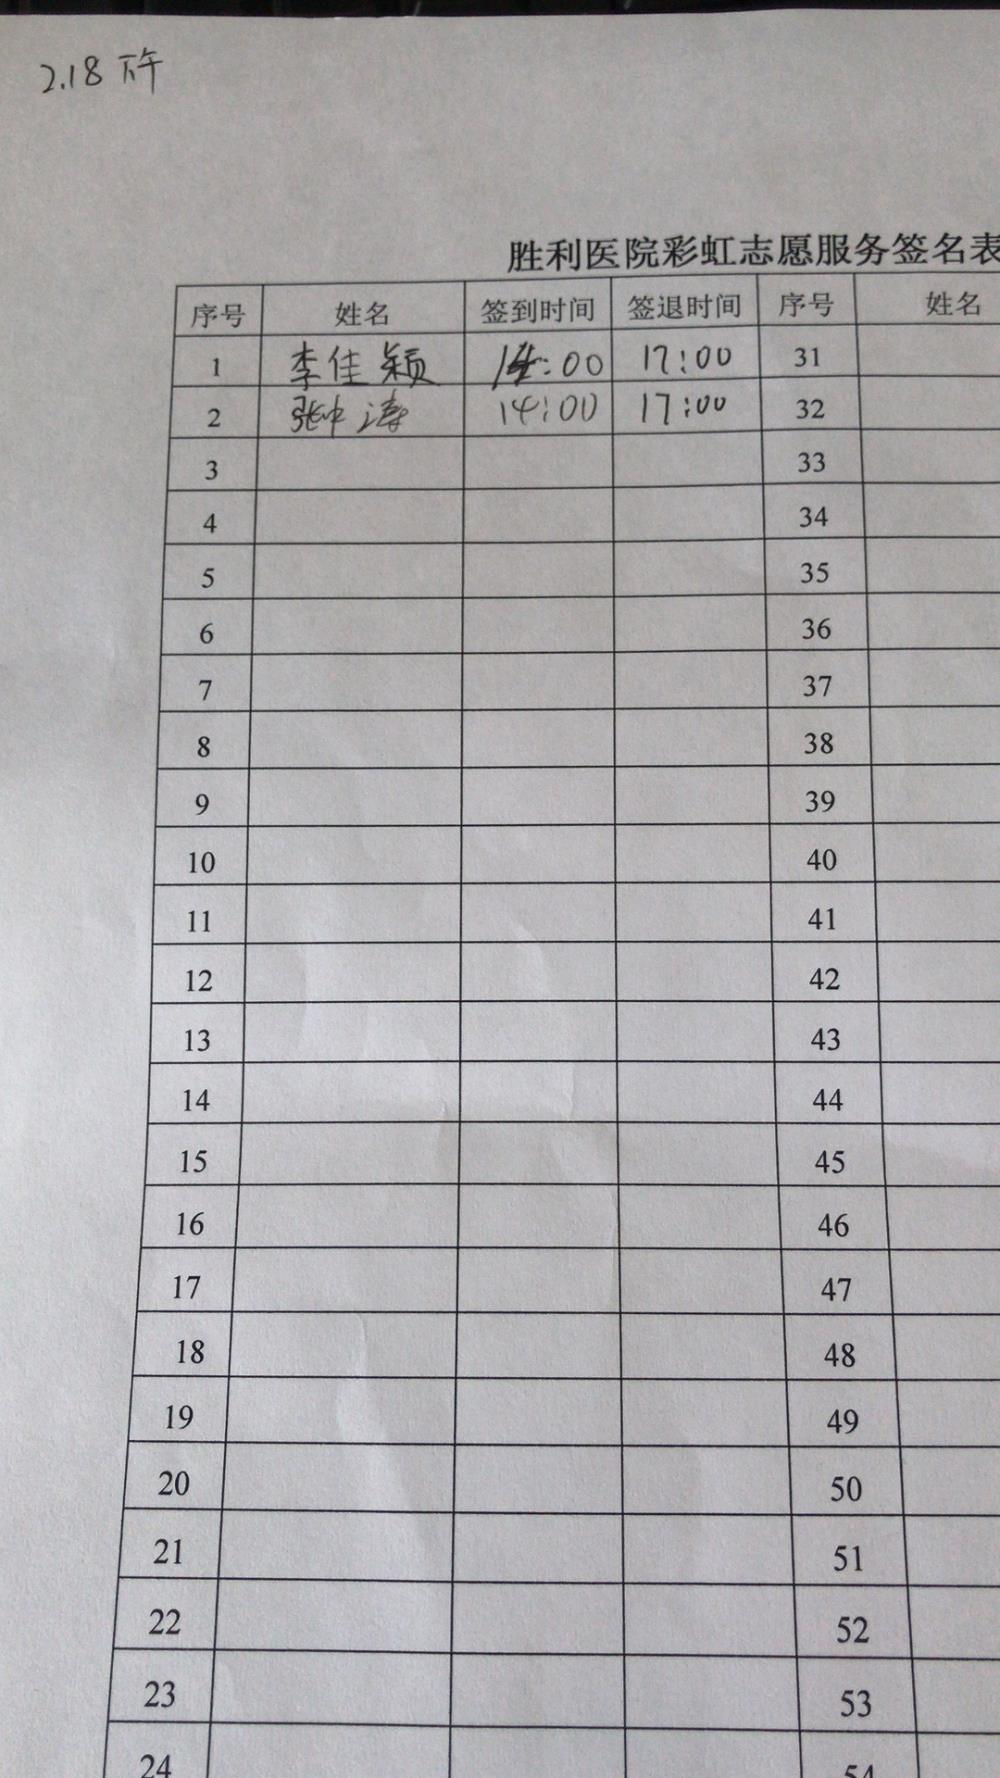 2.18 下午
胜利医院彩虹志愿服务签名表
序号 姓名 签到时间 签退时间 序号 姓名
1 李佳颖 14:00 17:00 31
2 张中涛 14:00 17:00 32
3 33
4 34
5 35
6 36
7 37
8 38
9 39
10 40
11 41
12 42
13 43
14 44
15 45
16 46
17 47
18 48
19 49
20 50
21 51
22 52
23 53
24 54